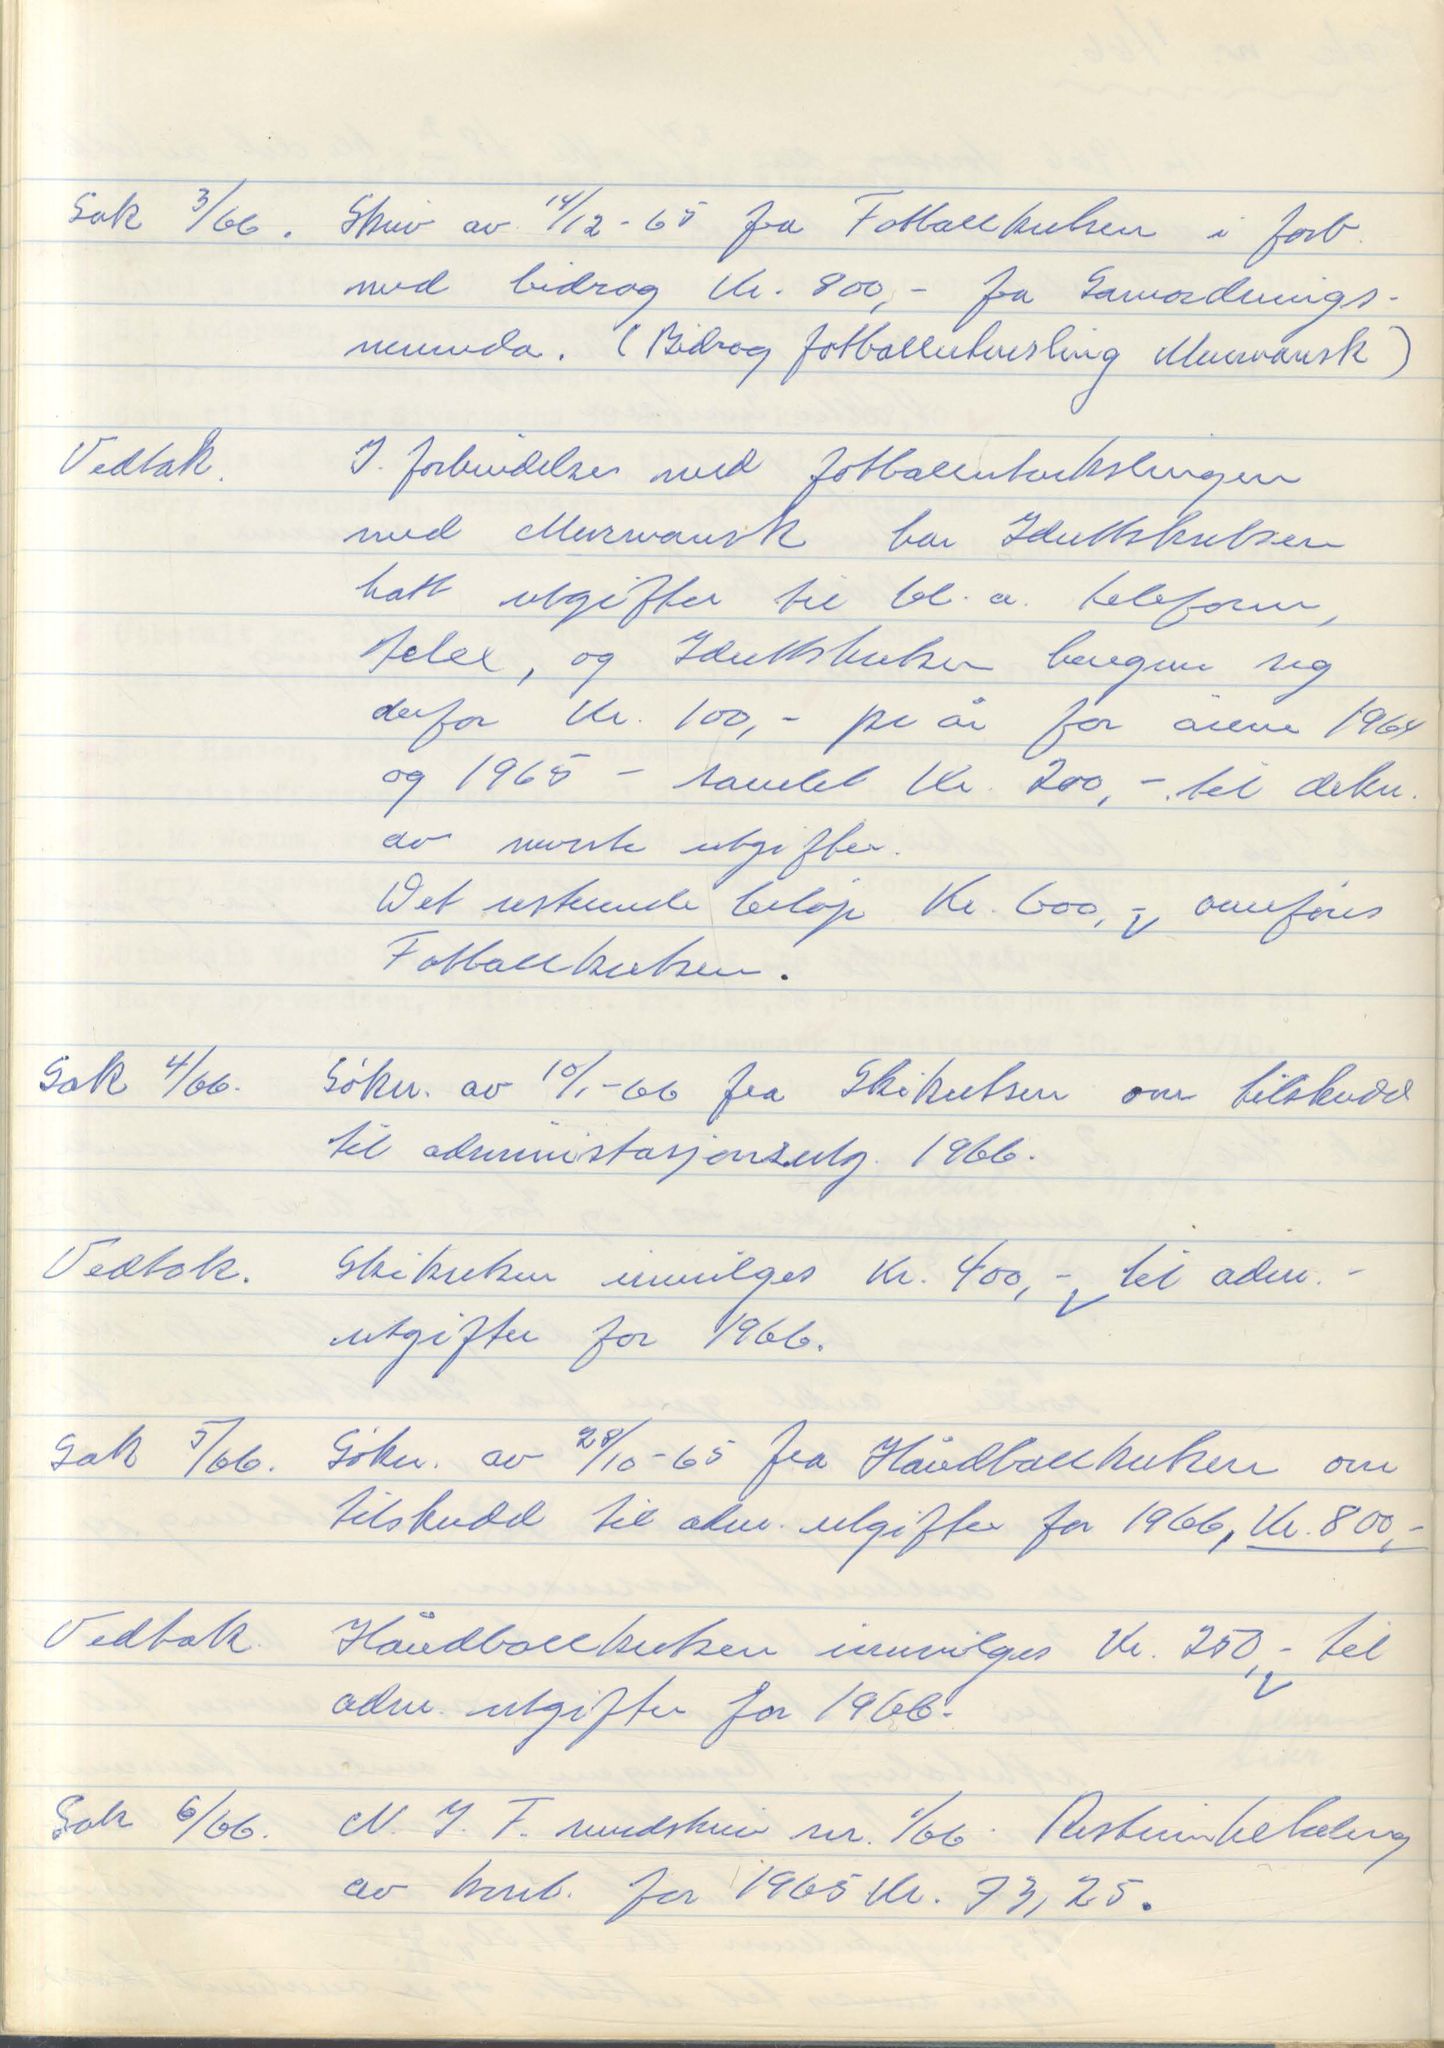 Sak 3/66. Skriv av 14/12-65 fra Fotballkretsen i forb.
med bidrag Kr. 800,- fra Samordnings-
nemnda. (Bidrag fotballutveksling Murmansk)
Vedtak. I forbindelse med fotballutvekslingen
med Murmansk har Idrettskretsen
hatt utgifter til bl.a. telefoner,
telex, og Idrettskretsen beregner seg
derfor Kr. 100,- pr år for årene 1964
og 1965 - samlet Kr. 200,- til dekn.
av nevnte utgifter.
Det resterende beløp Kr. 600,- overføres
Fotballkretsen.
Sak 4/66. Søkn. av 10/1-66 fra Skikretsen om tilskudd
til administasjonsutg. 1966.
Vedtak. Skikretsen innvilges Kr. 400,- til adm.-
utgifter for 1966.
Sak 5/66. Søkn. av 28/10-65 fra Håndballkretsen om
tilskudd til adm. utgifter for 1966, Kr. 800,-
Vedtak Håndballkretsen innvilges Kr. 250,- til
adm. utgifter for 1966.
Sak 6/66. N. I. F. rundskriv nr. 1/66. Restinnbetaling
av kont. for 1965 Kr. 73,25.